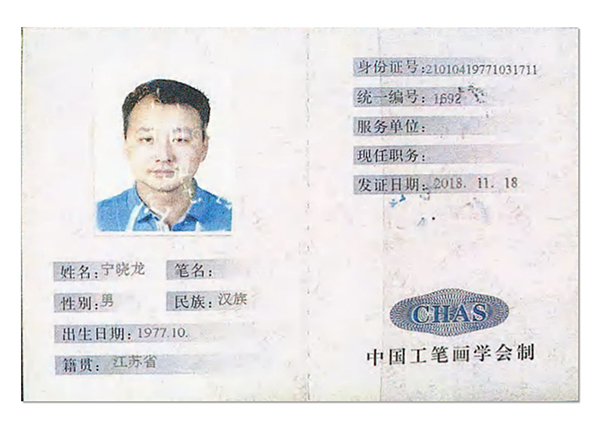 姓名:宁晓龙 笔名:
性别:男 民族:汉族
出生日期:1977.10.
籍贯:江苏省
身份证号:21010419771031711
统一编号:1692
服务单位:
现任职务:
发证日期:2018. 11. 18
CHAS
中国工笔画学会制